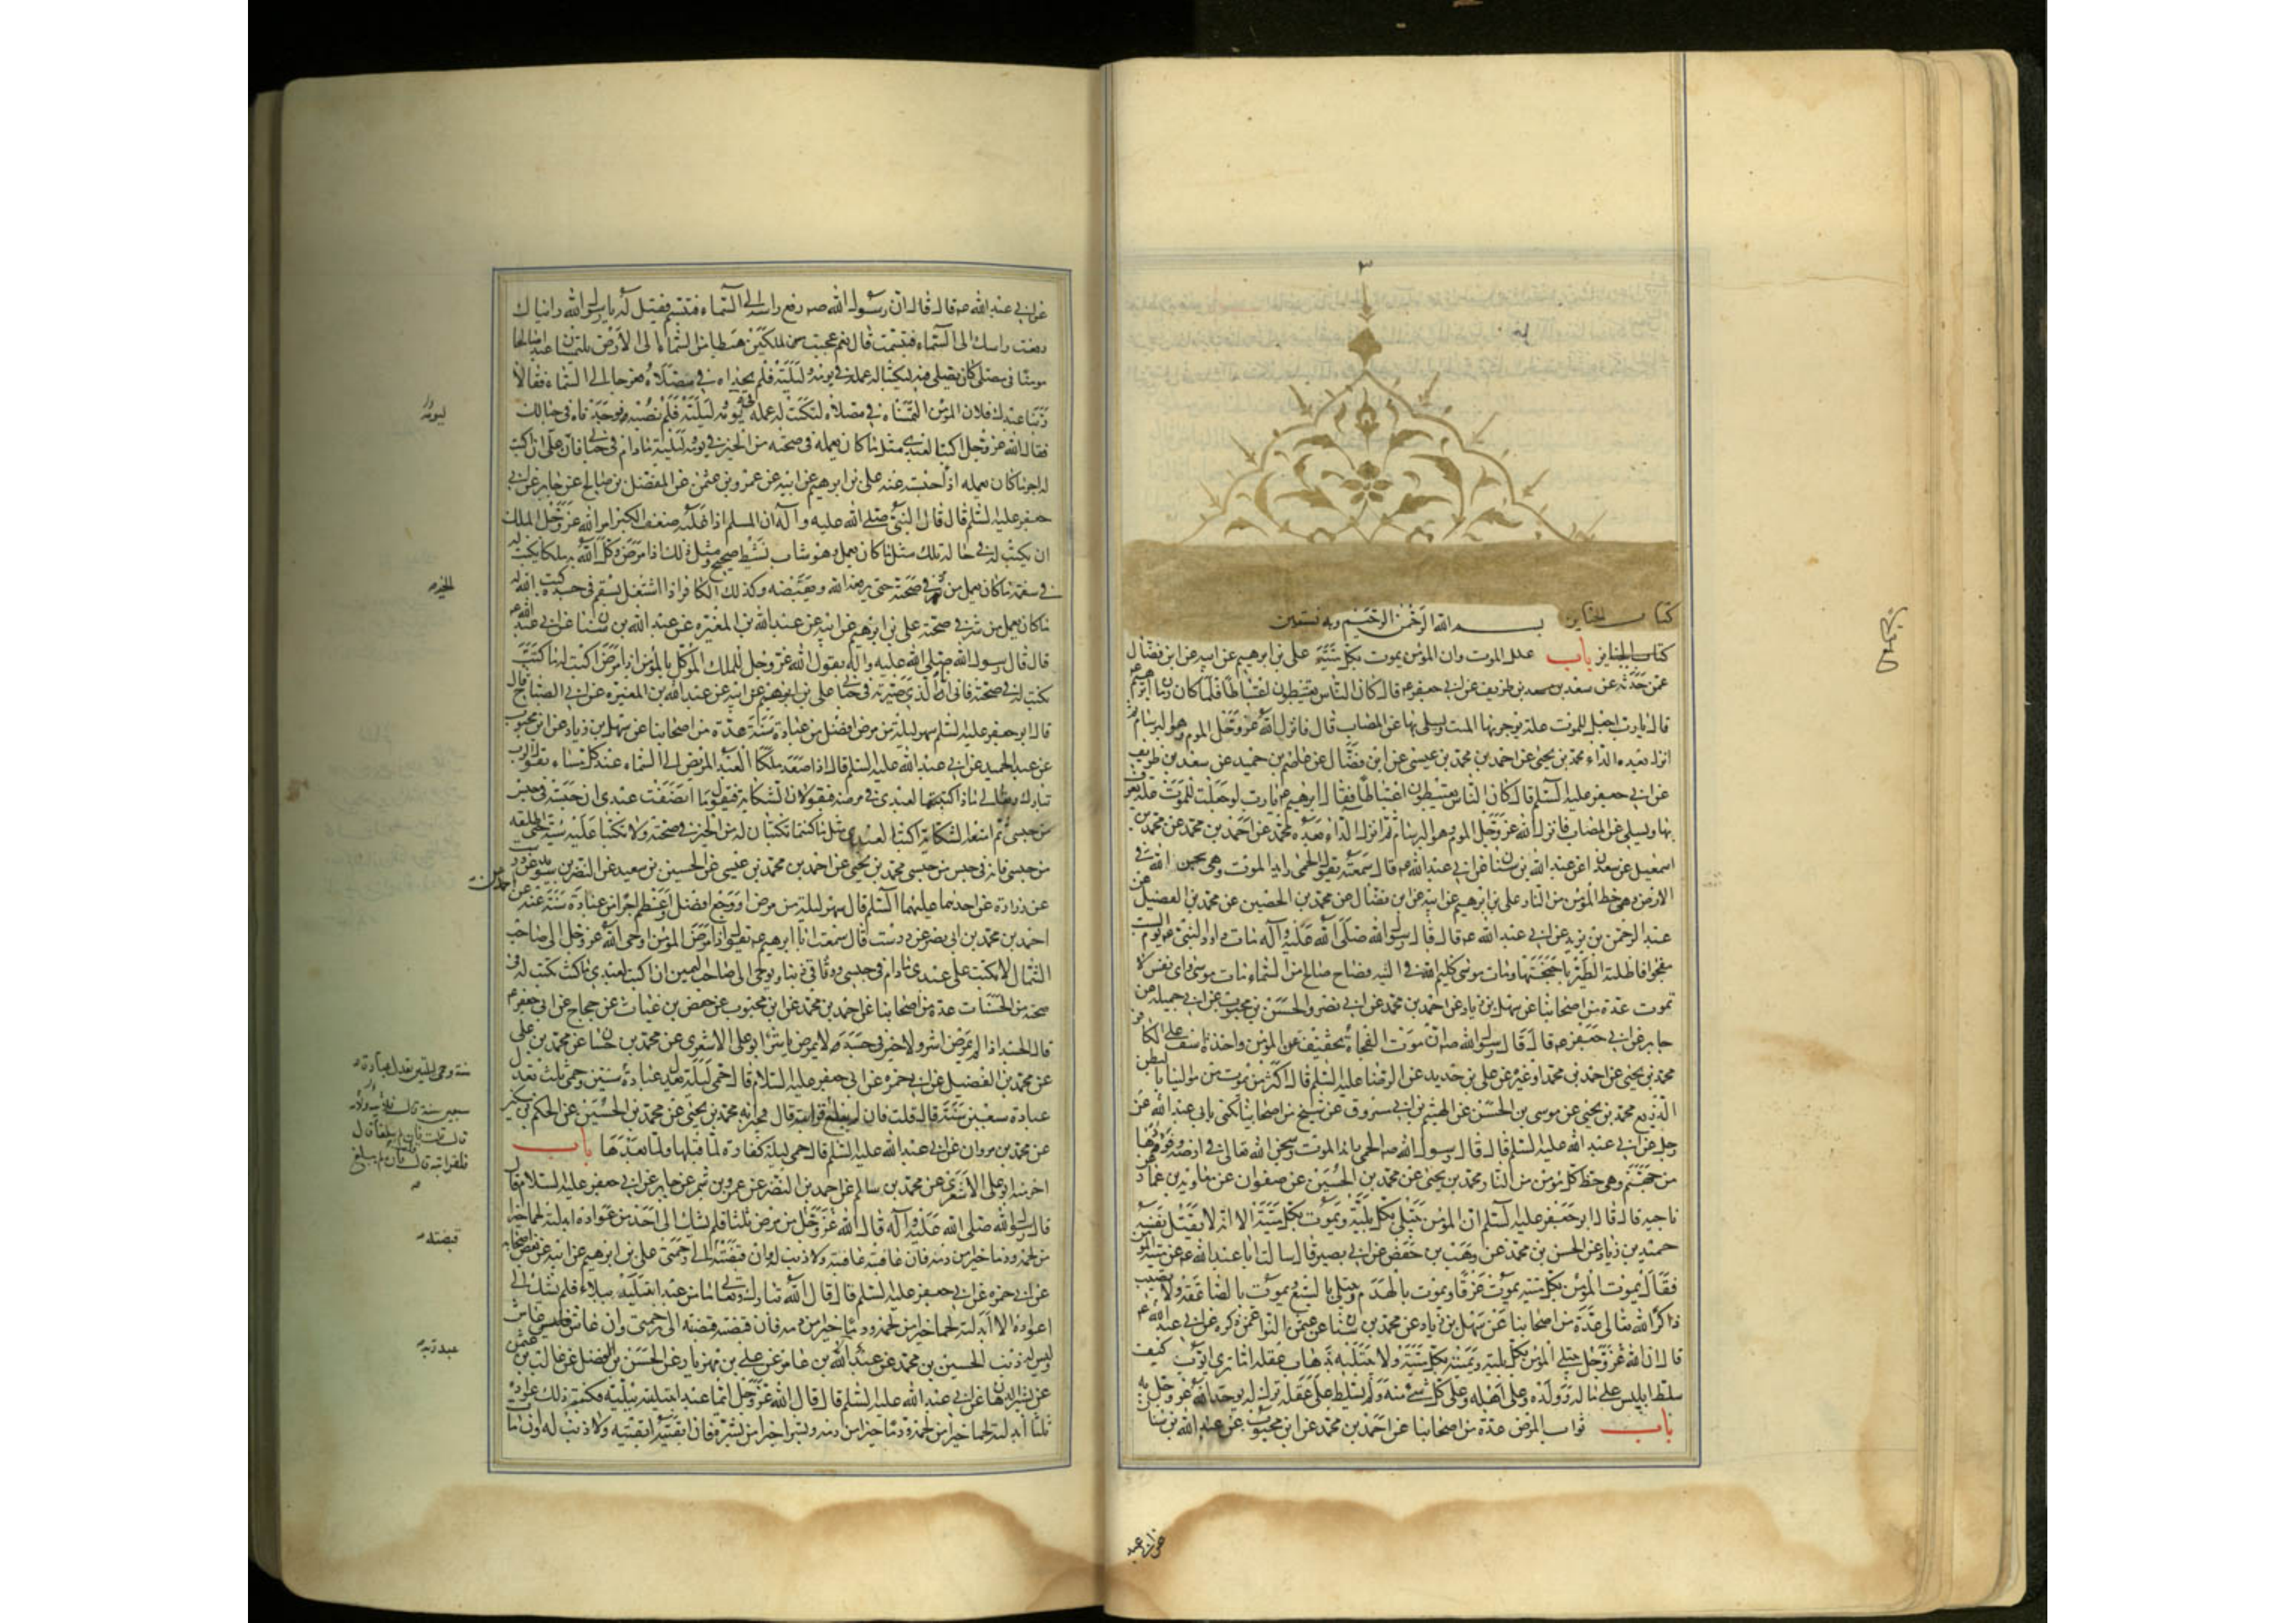 كتاب الجنايز
بسم الله الرحمن الرحيم وبه نستعين
كتاب الجنايز باب علل الموت وان المؤمن يموت بكل ميتة علي بن ابرهيم عن ابيه عن ابن فضال
عمن حدثه عن سعد بن طريف عن ابي جعفر ع قال كان الناس يعتبطون اعتباطا فلما كان زمان ابرهيم
قال يا رب اجعل للموت علة يوجر بها الميت ويسلى بها عن المصاب قال فانزل الله عز وجل الموم وهو البرسام ثم
انزل بعده الداء محمد بن يحيى عن احمد بن محمد بن عيسى عن ابن فضال عن عاصم بن حميد عن سعد بن طريف
عن ابي جعفر عليه السلم قال كان الناس يعتبطون اعتباطا فقال ابرهيم ع يا رب لو جعلت للموت علة يعرف
بها ويسلى عن المصاب فانزل الله عز وجل الموم وهو البرسام ثم انزل الداء بعده محمد عن احمد بن محمد عن محمد بن
اسمعيل عن سعدان عن عبد الله بن سنان عن ابي عبد الله ع قال سمعته يقول الحمى رايد الموت وهي سجن الله في
الارض وهي حظ المؤمن من النار علي بن ابرهيم عن ابيه عن ابن فضال عن محمد بن الحصين عن محمد بن الفضيل عن
عبد الرحمن بن يزيد عن ابي عبد الله ع قال قال رسول الله صلى الله عليه وآله مات داود النبي ع يوم السبت
مفجوا فاظلته الطير باجنحتها ومات موسى كليم الله في التيه فصاح صايح من السماء مات موسى واي نفس لا
تموت عدة من اصحابنا عن سهل بن زياد عن احمد بن محمد عن ابي نصر والحسن بن محبوب عن ابي جميلة عن
جابر عن ابي جعفر ع قال قال رسول الله ص ان موت الفجأة تخفيف عن المؤمن واخذة اسف على الكافر
محمد بن يحيى عن احمد بن محمد او غيره عن علي بن حديد عن الرضا عليه السلم قال اكثر من يموت من موالينا بالبطن
الذريع محمد بن يحيى عن موسى بن الحسن عن الهيثم بن ابي مسروق عن شيخ من اصحابنا يكنى بابي عبد الله عن
رجل عن ابي عبد الله عليه السلم قال قال رسول الله ص الحمى رايد الموت وسجن الله تعالى في ارضه وفورها
من جهنم وهي حظ كل مؤمن من النار محمد بن يحيى عن محمد بن الحسين عن صفوان عن معاوية بن عمار
ناجية قال قال ابو جعفر عليه السلم ان المؤمن يبتلى بكل بلية ويموت بكل ميتة الا انه لا يقتل نفسه
حميد بن زياد عن الحسن بن محمد عن وهب بن حفص عن ابي بصير قال سالت ابا عبد الله ع عن ميتة المؤمن
فقال يموت المؤمن بكل ميتة يموت غرقا ويموت بالهدم ويبتلى بالسبع ويموت بالصاعقة ولا يصيب
ذاكر الله تعالى عدة من اصحابنا عن سهل بن زياد عن محمد بن سنان عن عثمن النوا عمن ذكره عن ابي عبد الله ع
قال ان الله عز وجل يبتلي المؤمن بكل بلية ويميته بكل ميتة ولا يبتليه بذهاب عقله اما ترى ايوب كيف
سلط ابليس على ماله وولده وعلى اهله وعلى كل شيء منه ولم يسلط على عقله ترك له يوحد الله عز وجل به
باب ثواب المرض عدة من اصحابنا عن احمد بن محمد عن ابن محبوب عن عبد الله بن سنان
عن ابي عبد
عن ابي عبد الله ع قال قال ان رسول الله ص رفع راسه الى السماء فتبسم فقيل له يا رسول الله رايناك
رفعت راسك الى السماء فتبسمت قال نعم عجبت من ملكين هبطا من السماء الى الارض يلتمسان عبدا صالحا
مومنا في مصلى كان يصلي فيه ليكتبا له عمله في يومه وليلته فلم يجداه في مصلاه فعرجا الى السماء فقالا
ربنا عبدك فلان المؤمن التمسناه في مصلاه لنكتب له عمله ليومه وليلته فلم نصبه فوجدناه في حبالك
فقال الله عز وجل اكتبا لعبدي مثل ما كان يعمله في صحته من الخير في يومه وليلته ما دام في حبالي فان علي ان اكتب
له اجر ما كان يعمله اذا حبسته عنه علي بن ابرهيم عن ابيه عن عمرو بن عثمن عن المفضل بن صالح عن جابر عن ابي
جعفر عليه السلم قال قال النبي صلى الله عليه وآله ان المسلم اذا غلبه ضعف الكبر امر الله عز وجل الملك
ان يكتب له في حاله تلك مثل ما كان يعمل وهو شاب نشيط صحيح ومثل ذلك اذا مرض وكل الله به ملكا يكتب له
في سقمه ما كان يعمل من في صحته حتى يرفعه الله ويقبضه وكذلك الكافر اذا اشتغل بسقم في جسده كتب الله له
ما كان يعمل من شر في صحته علي بن ابرهيم عن ابيه عن عبد الله بن المغيرة عن عبد الله بن سنان عن ابي عبد الله ع
قال قال رسول الله صلى الله عليه وآله يقول الله عز وجل للملك الموكل بالمؤمن اذا مرض اكتب له ما كنت
تكتب له في صحته فاني انا الذي صيرته في حبالي علي بن ابرهيم عن ابيه عن عبد الله بن المغيرة عن ابي الصباح قال
قال ابو جعفر عليه السلم سهر ليلة من مرض افضل من عبادة سنة عدة من اصحابنا عن سهل بن زياد عن ابن محبوب
عن عبد الحميد عن ابي عبد الله عليه السلم قال اذا صعد ملكا العبد المريض الى السماء عند كل مساء يقول الرب
تبارك وتعالى ماذا كتبتما لعبدي في مرضه فيقولان الشكاية فيقول ما انصفت عبدي ان حبسته في حبس
من حبسي ثم امنعه الشكاية اكتبا لعبدي مثل ما كنتما تكتبان له من الخير في صحته ولا تكتبا عليه سيئة حتى اطلقه
من حبسي فانه في حبس من حبسي محمد بن يحيى عن احمد بن محمد بن عيسى عن الحسين بن سعيد عن النضر بن سويد عن درست
عن زرارة عن احدهما عليهما السلم قال سهر ليلة من مرض او وجع افضل واعظم اجرا من عبادة سنة عنه عن
احمد بن محمد بن ابي نصر عن درست قال سمعت ابا ابرهيم ع يقول اذا مرض المؤمن اوحى الله عز وجل الى صاحب
الشمال لا تكتب على عبدي ما دام في حبسي ووثاقي ذنبا ويوحي الى صاحب اليمين ان اكتب لعبدي ما كنت تكتب له في
صحته من الحسنات عدة من اصحابنا عن احمد بن محمد عن ابن محبوب عن حفص بن غياث عن حجاج عن ابي جعفر ع
قال الجسد اذا لم يمرض اشر ولا خير في جسد لا يمرض باشر ابو علي الاشعري عن محمد بن حسان عن محمد بن علي
عن محمد بن الفضيل عن ابي حمزة عن ابي جعفر عليه السلام قال حمى ليلة تعدل عبادة سنتين وحمى ثلث تعدل
عبادة سبعين سنة قال قلت فان لم يبلغ قال محمد بن يحيى عن محمد بن الحسين عن الحكم بن مسكين
عن محمد بن مروان عن ابي عبد الله عليه السلم قال حمى ليلة كفارة لما قبلها ولما بعدها باب
اخر منه ابو علي الاشعري عن محمد بن سالم عن احمد بن النضر عن عمرو بن شمر عن جابر عن ابي جعفر عليه السلام قال
قال رسول الله صلى الله عليه وآله قال الله عز وجل من مرض ثلثا فلم يشك الى احد من عواده ابدلته لحما خيرا
من لحمه ودما خيرا من دمه فان عافيته عافيته ولا ذنب له وان قبضته الى رحمتي علي بن ابرهيم عن ابيه عن بعض اصحابه
عن ابي حمزة عن ابي جعفر عليه السلم قال قال الله تبارك وتعالى ما من عبد ابتليته ببلاء فلم يشك الى
عواده الا ابدلته لحما خيرا من لحمه ودما خيرا من دمه فان قبضته قبضته الى رحمتي وان عاش عاش
وليس له ذنب الحسين بن محمد عن عبد الله بن عامر عن علي بن مهزيار عن الحسن بن الفضل عن غالب بن عثمن
عن بشير الدهان عن ابي عبد الله عليه السلم قال قال الله عز وجل ايما عبد ابتليته ببلية فكتم ذلك عواده
ثلثا ابدلته لحما خيرا من لحمه ودما خيرا من دمه وبشرا خيرا من بشره فان ابقيته ابقيته ولا ذنب له وان مات
ليومه
الخير
سنة وحمى ليلتين تعدل عبادة
قبضته